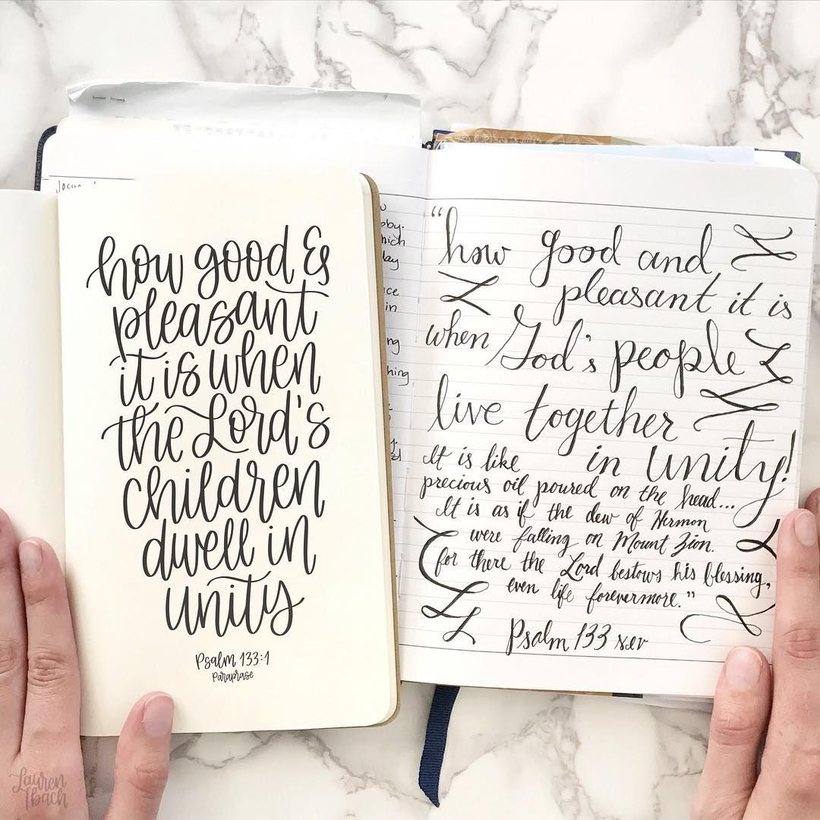 how good &
pleasant
it is when
the Lord's
children
dwell in
unity
Psalm 133:1
Paraphrase
"how good and
pleasant it is
when God's people
live together
in unity!
It is like
precious oil poured on the head...
It is as if the dew of Hermon
were falling on Mount Zion.
for there the Lord bestows his blessing,
even life forevermore."
Psalm 133
Lauren
Ibach